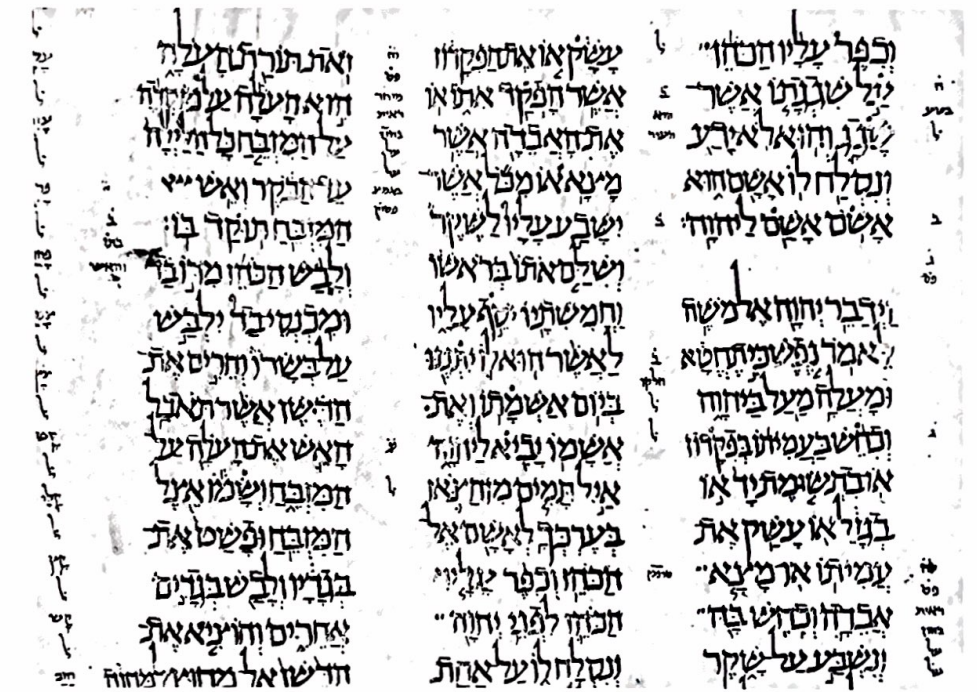 וְכִפֶּר עָלָיו הַכֹּהֵן
עַל שִׁגְגָתוֹ אֲשֶׁר
שָׁגָג וְהוּא לֹא יָדַע
וְנִסְלַח לוֹ אָשָׁם הוּא
אָשֹׁם אָשַׁם לַיהוָה׃
וַיְדַבֵּר יְהוָה אֶל מֹשֶׁה
לֵּאמֹר נֶפֶשׁ כִּי תֶחֱטָא
וּמָעֲלָה מַעַל בַּיהוָה
וְכִחֵשׁ בַּעֲמִיתוֹ בְּפִקָּדוֹן
אוֹ בִתְשׂוּמֶת יָד אוֹ
בְגָזֵל אוֹ עָשַׁק אֶת
עֲמִיתוֹ אוֹ מָצָא
אֲבֵדָה וְכִחֶשׁ בָּהּ
וְנִשְׁבַּע עַל שָׁקֶר
עָשָׁק אוֹ אֶת הַפִּקָּדוֹן
אֲשֶׁר הָפְקַד אִתּוֹ אוֹ
אֶת הָאֲבֵדָה אֲשֶׁר
מָצָא אוֹ מִכֹּל אֲשֶׁר
יִשָּׁבַע עָלָיו לַשֶּׁקֶר
וְשִׁלַּם אֹתוֹ בְּרֹאשׁוֹ
וַחֲמִשִׁתָיו יֹסֵף עָלָיו
לַאֲשֶׁר הוּא לוֹ יִתְּנֶנּוּ
בְּיוֹם אַשְׁמָתוֹ וְאֶת
אֲשָׁמוֹ יָבִיא לַיהוָה
אַיִל תָּמִים מִן הַצֹּאן
בְּעֶרְכְּךָ לְאָשָׁם אֶל
הַכֹּהֵן וְכִפֶּר עָלָיו
הַכֹּהֵן לִפְנֵי יְהוָה
וְנִסְלַח לוֹ עַל אַחַת
זֹאת תּוֹרַת הָעֹלָה
הִוא הָעֹלָה עַל מוֹקְדָה
עַל הַמִּזְבֵּחַ כָּל הַלַּיְלָה
עַד הַבֹּקֶר וְאֵשׁ
הַמִּזְבֵּחַ תּוּקַד בּוֹ׃
וְלָבַשׁ הַכֹּהֵן מִדּוֹ בַד
וּמִכְנְסֵי בַד יִלְבַּשׁ
עַל בְּשָׂרוֹ וְהֵרִים אֶת
הַדֶּשֶׁן אֲשֶׁר תֹּאכַל
הָאֵשׁ אֶת הָעֹלָה עַל
הַמִּזְבֵּחַ וְשָׂמוֹ אֵצֶל
הַמִּזְבֵּחַ וּפָשַׁט אֶת
בְּגָדָיו וְלָבַשׁ בְּגָדִים
אֲחֵרִים וְהוֹצִיא אֶת
הַדֶּשֶׁן אֶל מִחוּץ לַמַּחֲנֶה